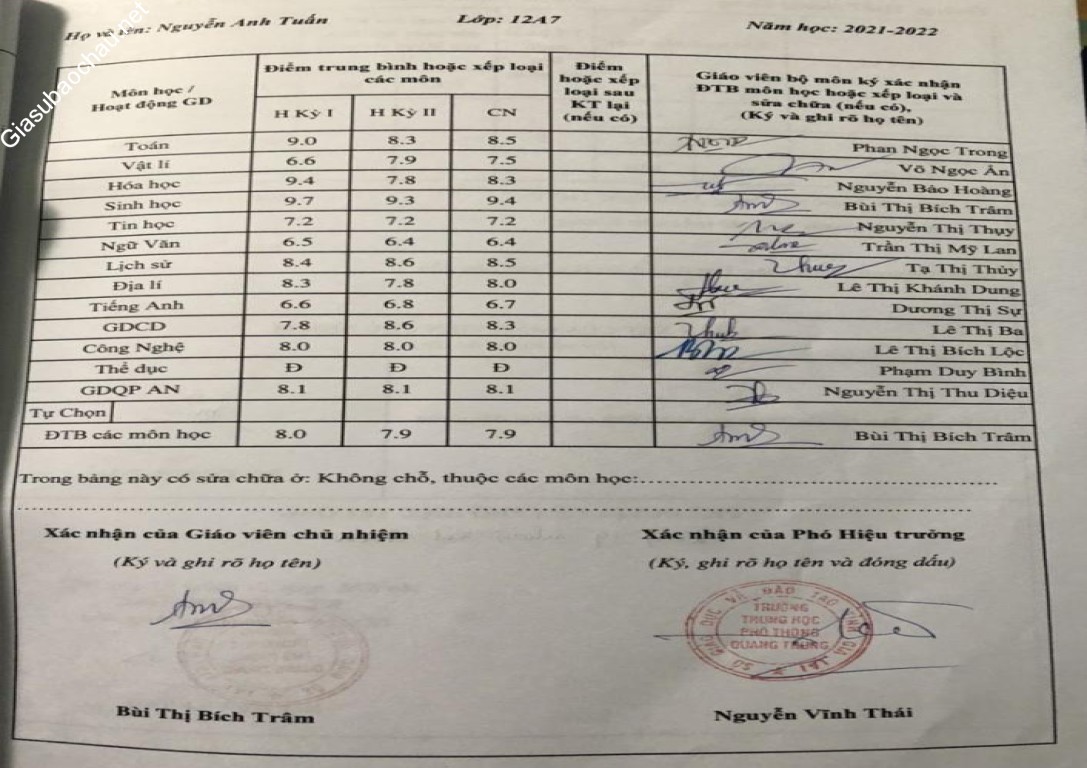 Giasubaochau.net
Họ và tên: Nguyễn Anh Tuấn Lớp: 12A7 Năm học: 2021-2022
Môn học / Hoạt động GD
Điểm trung bình hoặc xếp loại các môn
H Kỳ I H Kỳ II CN
Điểm hoặc xếp loại sau KT lại (nếu có)
Giáo viên bộ môn ký xác nhận ĐTB môn học hoặc xếp loại và sửa chữa (nếu có), (Ký và ghi rõ họ tên)
Toán 9.0 8.3 8.5 Phan Ngọc Trong
Vật lí 6.6 7.9 7.5 Võ Ngọc Ẩn
Hóa học 9.4 7.8 8.3 Nguyễn Bảo Hoàng
Sinh học 9.7 9.3 9.4 Bùi Thị Bích Trâm
Tin học 7.2 7.2 7.2 Nguyễn Thị Thụy
Ngữ Văn 6.5 6.4 6.4 Trần Thị Mỹ Lan
Lịch sử 8.4 8.6 8.5 Tạ Thị Thủy
Địa lí 8.3 7.8 8.0 Lê Thị Khánh Dung
Tiếng Anh 6.6 6.8 6.7 Dương Thị Sự
GDCD 7.8 8.6 8.3 Lê Thị Ba
Công Nghệ 8.0 8.0 8.0 Lê Thị Bích Lộc
Thể dục Đ Đ Đ Phạm Duy Bình
GDQP AN 8.1 8.1 8.1 Nguyễn Thị Thu Diệu
Tự Chọn
ĐTB các môn học 8.0 7.9 7.9 Bùi Thị Bích Trâm
Trong bảng này có sửa chữa ở: Không chỗ, thuộc các môn học:
Xác nhận của Giáo viên chủ nhiệm Xác nhận của Phó Hiệu trưởng
(Ký và ghi rõ họ tên) (Ký, ghi rõ họ tên và đóng dấu)
SỞ GIÁO DỤC VÀ ĐÀO TẠO TỈNH GIA LAI
TRƯỜNG
TRUNG HỌC
PHỔ THÔNG
QUANG TRUNG
Bùi Thị Bích Trâm Nguyễn Vĩnh Thái